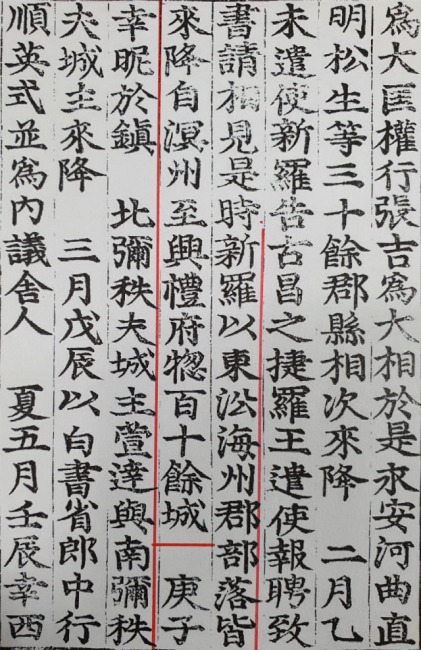 爲大匡權行張吉爲大相於是永安河曲直
明松生等三十餘郡縣相次來降　二月乙
未遣使新羅告古昌之捷羅王遣使報聘致
書請相見是時新羅以東㳂海州郡部落皆
來降自溟州至興禮府揔百十餘城　庚子
幸昵於鎭　北彌秩夫城主萱達與南彌秩
夫城主來降　三月戊辰以白書省郎中行
順英式並爲內議舍人　夏五月壬辰幸西